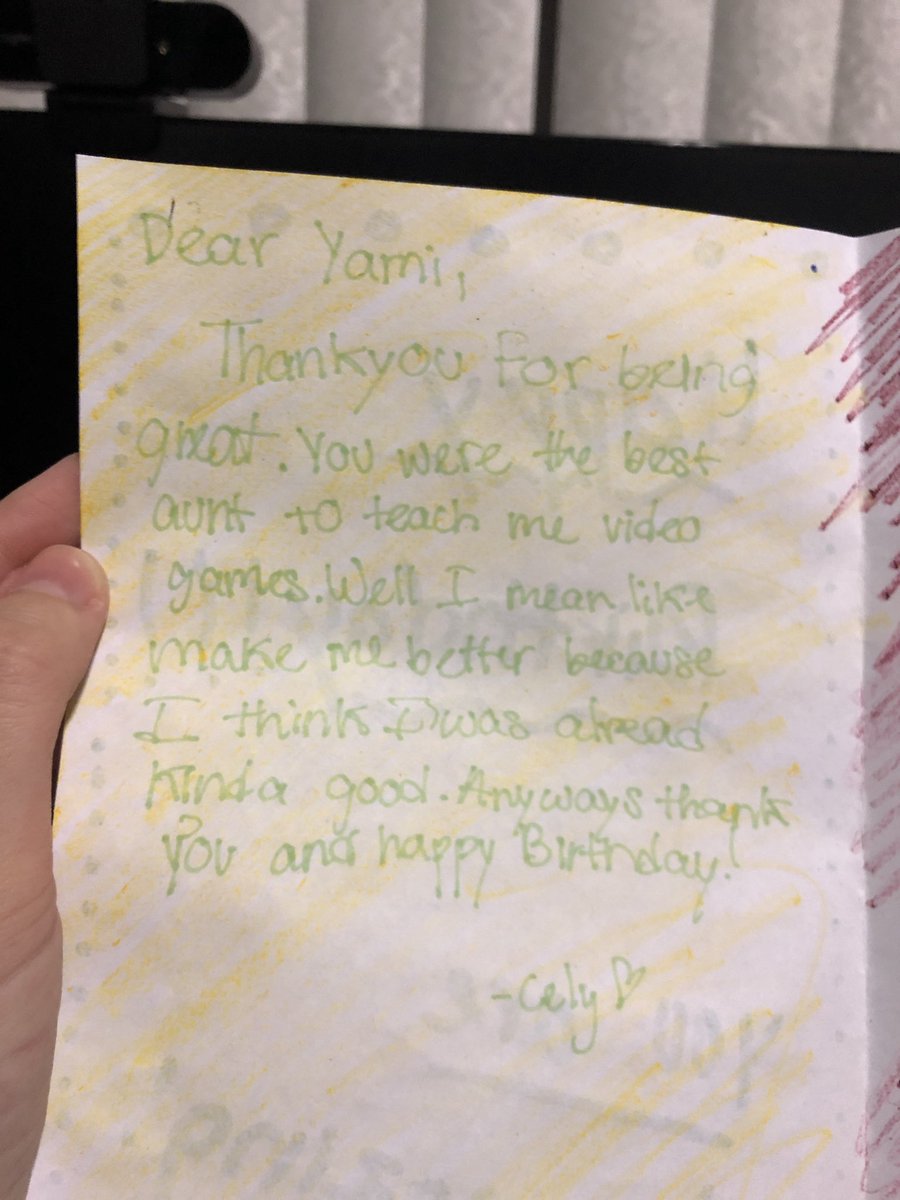 Dear Yami,
Thankyou for being
great. You were the best
aunt to teach me video
games. Well I mean like
make me better because
I think I was alread
kinda good. Anyways thank
you and happy Birthday!
-Cely♡